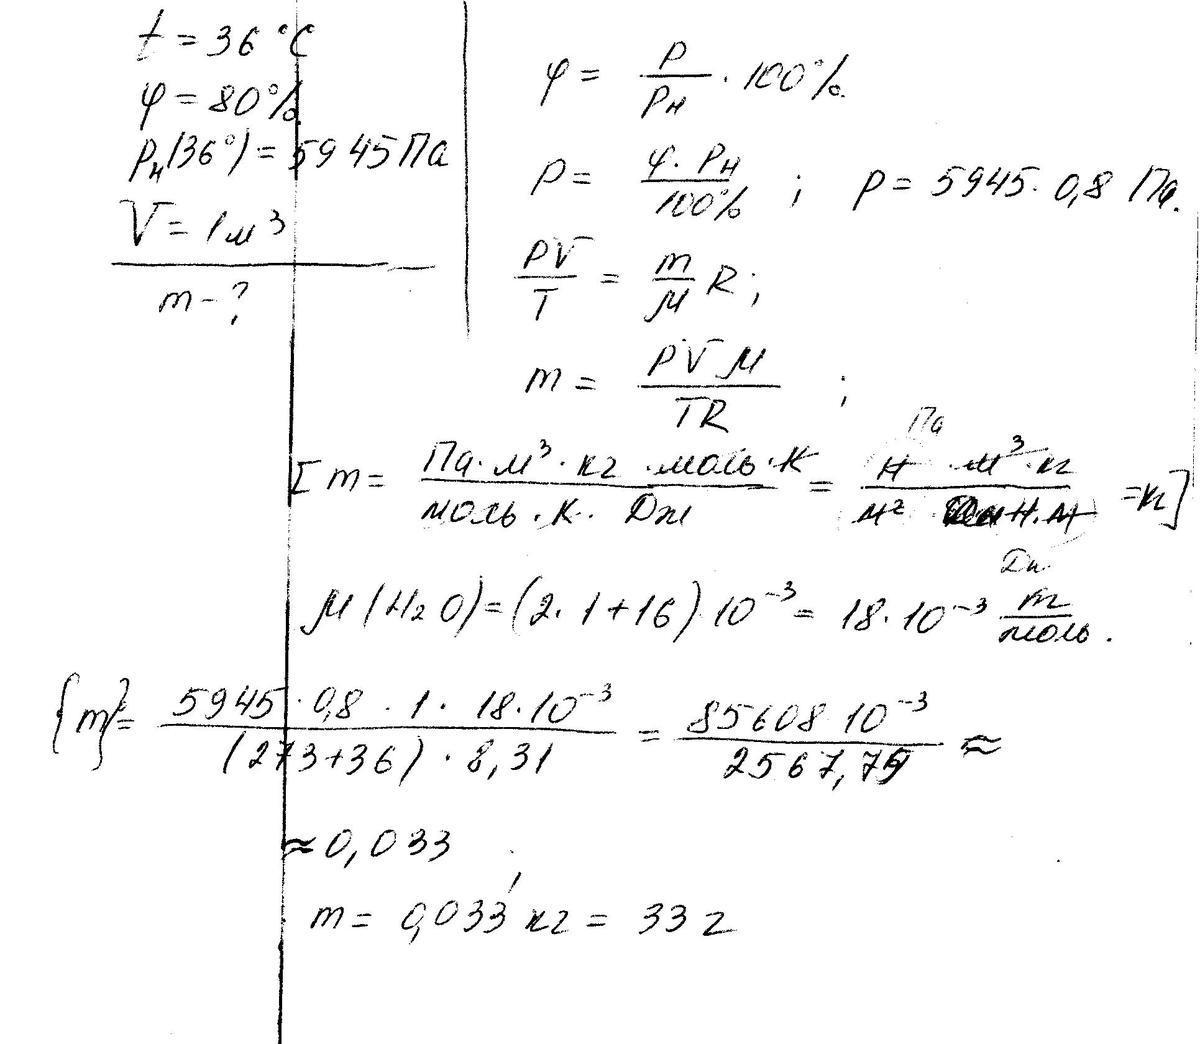 t = 36 °C
φ = 80%
Pн(36°) = 5945 Па
V = 1 м³
m - ?
φ = P/Pн · 100%
P = φ · Pн / 100% ; P = 5945 · 0,8 Па.
PV/T = m/M R ;
m = PVM/TR ;
Па
[m = Па · м³ · кг · моль · К / моль · К · Дж = Н · м³ · кг / м² · Н · м = к]
M(H₂O) = (2 · 1 + 16) 10⁻³ = 18 · 10⁻³ m/моль .
{m} = 5945 · 0,8 · 1 · 18 · 10⁻³ / (273 + 36) · 8,31 = 85608 10⁻³ / 2567,79 ≈
≈ 0,033
m = 0,033 кг = 33 г